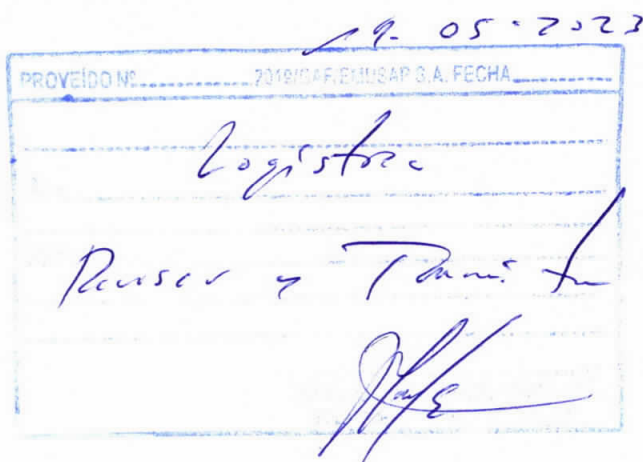 19-05-2023
PROVEÍDO Nº............2019/GAF.EMUSAP S.A. FECHA............
Logística
Revisar y Trámite